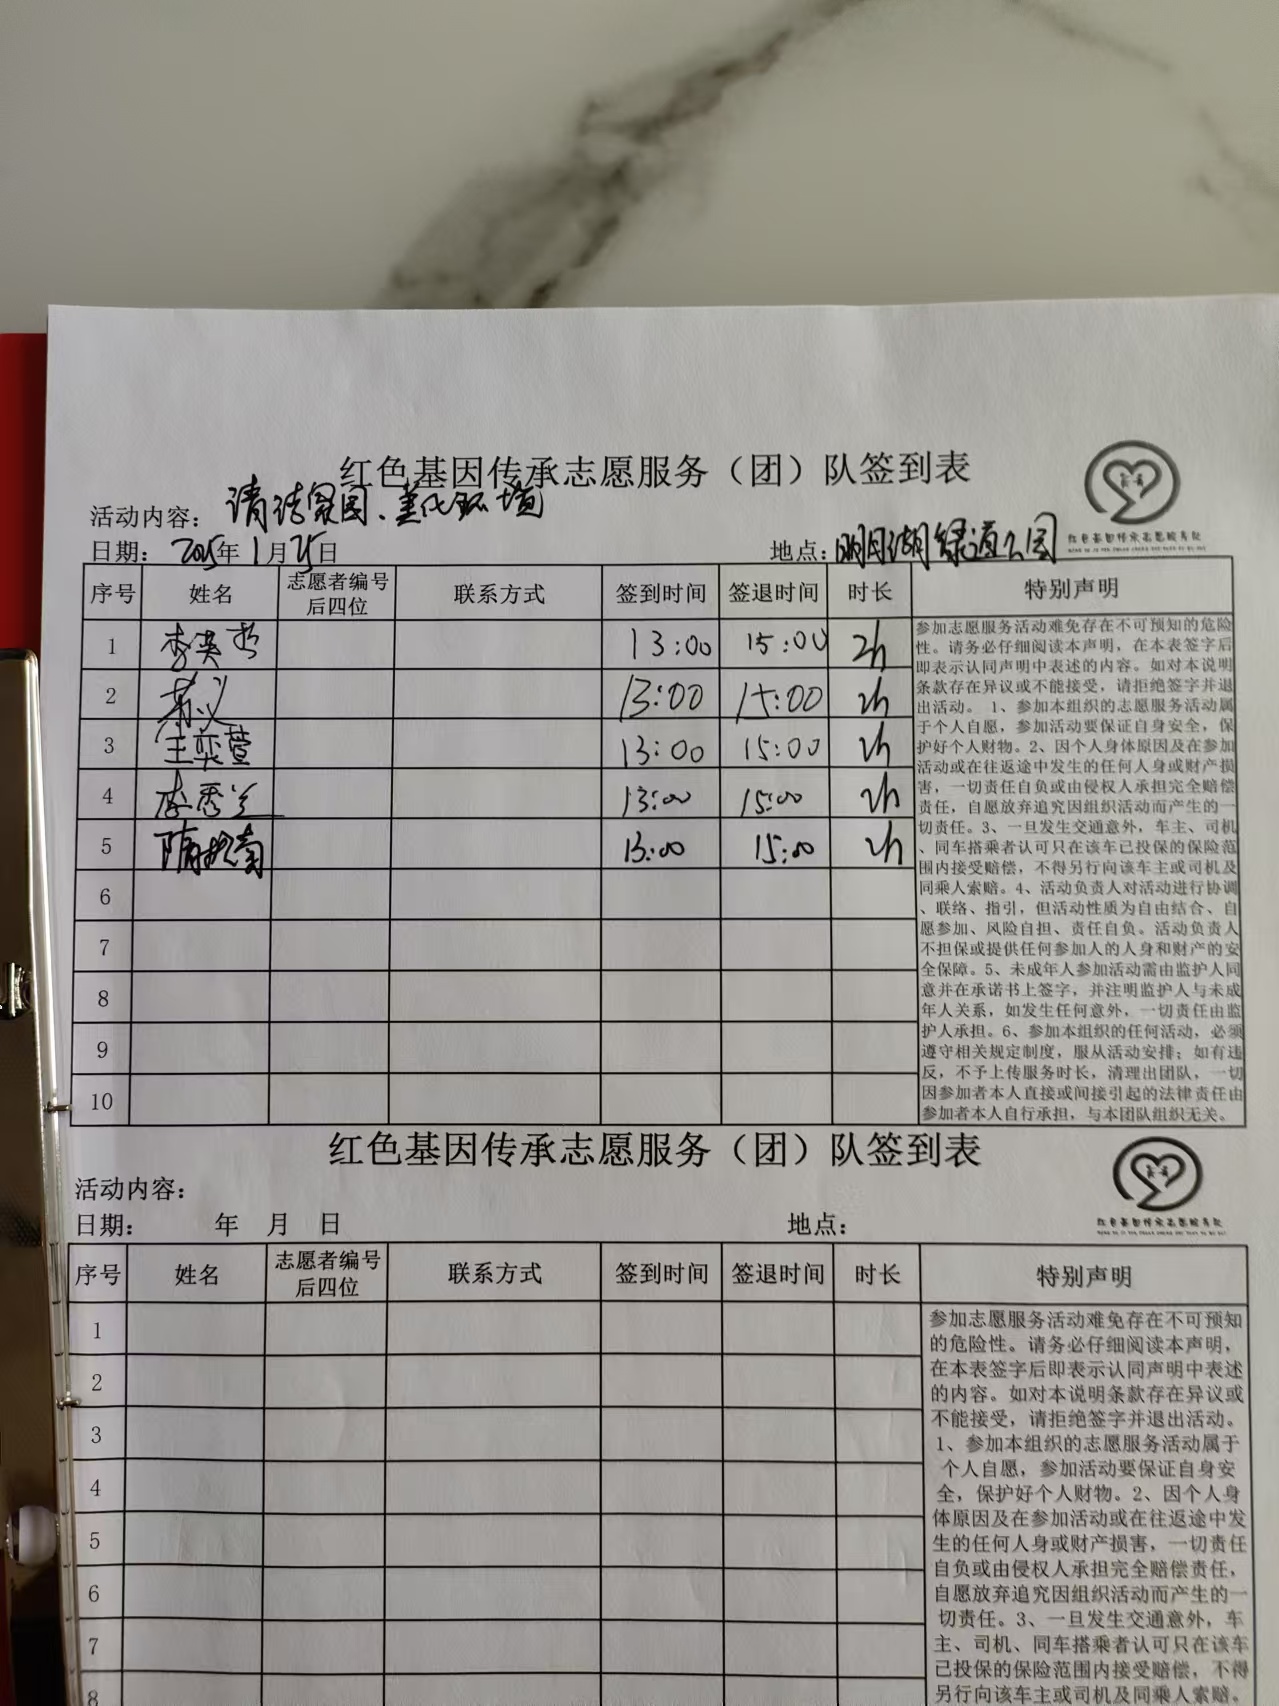 红色基因传承志愿服务（团）队签到表
活动内容：清洁家园、美化环境
日期：2025年1月25日 地点：明月湖绿道公园
红色基因传承志愿服务队
序号 姓名 志愿者编号后四位 联系方式 签到时间 签退时间 时长 特别声明
1 李英 13:00 15:00 2h
2 苏义 13:00 15:00 2h
3 王奕萱 13:00 15:00 2h
4 李秀兰 13:00 15:00 2h
5 13:00 15:00 2h
6
7
8
9
10
参加志愿服务活动难免存在不可预知的危险
性。请务必仔细阅读本声明，在本表签字后
即表示认同声明中表述的内容。如对本说明
条款存在异议或不能接受，请拒绝签字并退
出活动。 1、参加本组织的志愿服务活动属
于个人自愿，参加活动要保证自身安全，保
护好个人财物。2、因个人身体原因及在参加
活动或在往返途中发生的任何人身或财产损
害，一切责任自负或由侵权人承担完全赔偿
责任，自愿放弃追究因组织活动而产生的一
切责任。3、一旦发生交通意外，车主、司机
、同车搭乘者认可只在该车已投保的保险范
围内接受赔偿，不得另行向该车主或司机及
同乘人索赔。4、活动负责人对活动进行协调
、联络、指引，但活动性质为自由结合、自
愿参加、风险自担、责任自负。活动负责人
不担保或提供任何参加人的人身和财产的安
全保障。5、未成年人参加活动需由监护人同
意并在承诺书上签字，并注明监护人与未成
年人关系，如发生任何意外，一切责任由监
护人承担。6、参加本组织的任何活动，必须
遵守相关规定制度，服从活动安排；如有违
反，不予上传服务时长，清理出团队，一切
因参加者本人直接或间接引起的法律责任由
参加者本人自行承担，与本团队组织无关。
红色基因传承志愿服务（团）队签到表
活动内容：
日期： 年 月 日 地点：
红色基因传承志愿服务队
序号 姓名 志愿者编号后四位 联系方式 签到时间 签退时间 时长 特别声明
1
2
3
4
5
6
7
8
参加志愿服务活动难免存在不可预知
的危险性。请务必仔细阅读本声明，
在本表签字后即表示认同声明中表述
的内容。如对本说明条款存在异议或
不能接受，请拒绝签字并退出活动。
1、参加本组织的志愿服务活动属于
个人自愿，参加活动要保证自身安
全，保护好个人财物。2、因个人身
体原因及在参加活动或在往返途中发
生的任何人身或财产损害，一切责任
自负或由侵权人承担完全赔偿责任，
自愿放弃追究因组织活动而产生的一
切责任。3、一旦发生交通意外，车
主、司机、同车搭乘者认可只在该车
已投保的保险范围内接受赔偿，不得
另行向该车主或司机及同乘人索赔。